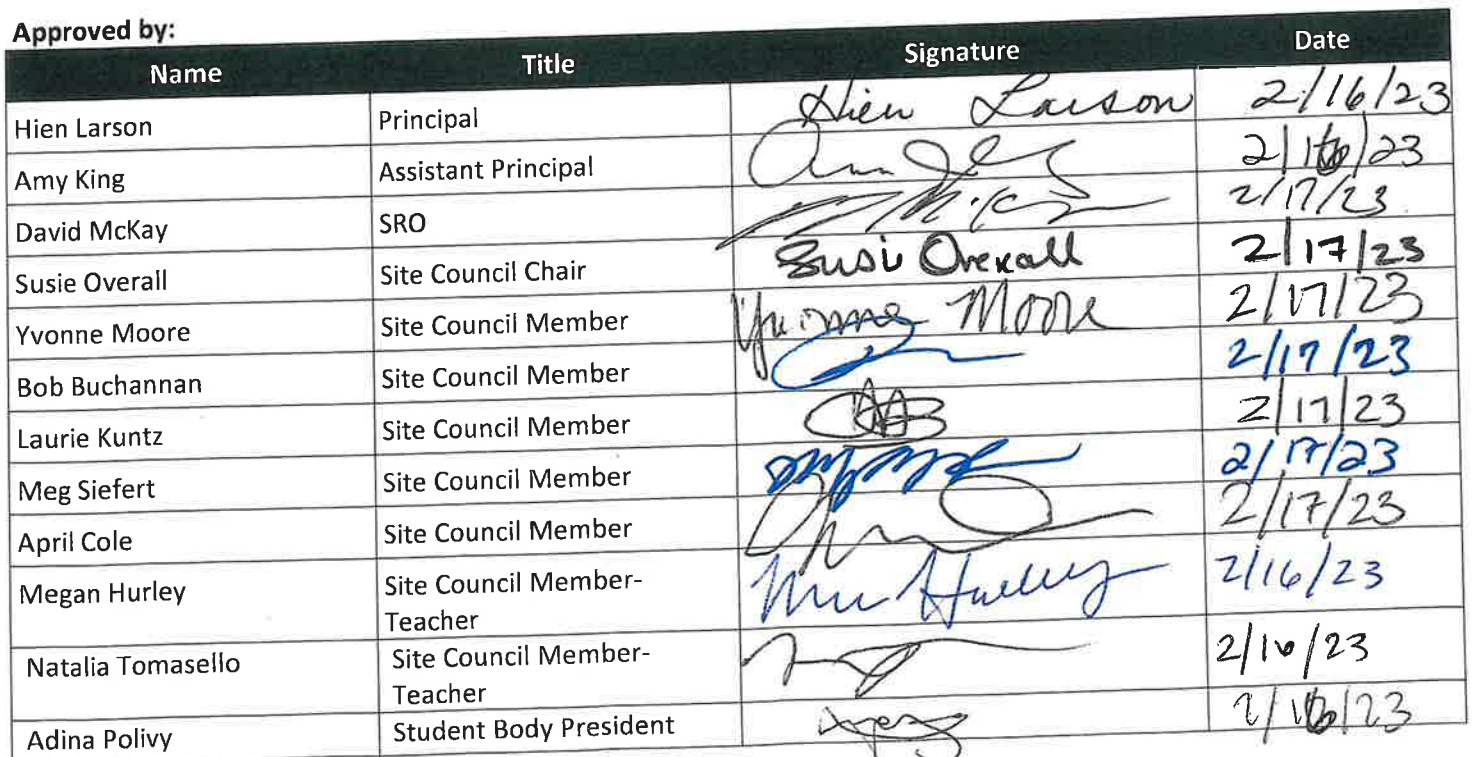 Approved by:
Name Title Signature Date
Hien Larson Principal Hien Larson 2/16/23
Amy King Assistant Principal 2/16/23
David McKay SRO 2/17/23
Susie Overall Site Council Chair Susie Overall 2/17/23
Yvonne Moore Site Council Member Yvonne Moore 2/17/23
Bob Buchannan Site Council Member 2/17/23
Laurie Kuntz Site Council Member 2/17/23
Meg Siefert Site Council Member 2/17/23
April Cole Site Council Member 2/17/23
Megan Hurley Site Council Member- Hurley 2/16/23
Teacher
Natalia Tomasello Site Council Member- 2/16/23
Teacher
Adina Polivy Student Body President 2/16/23